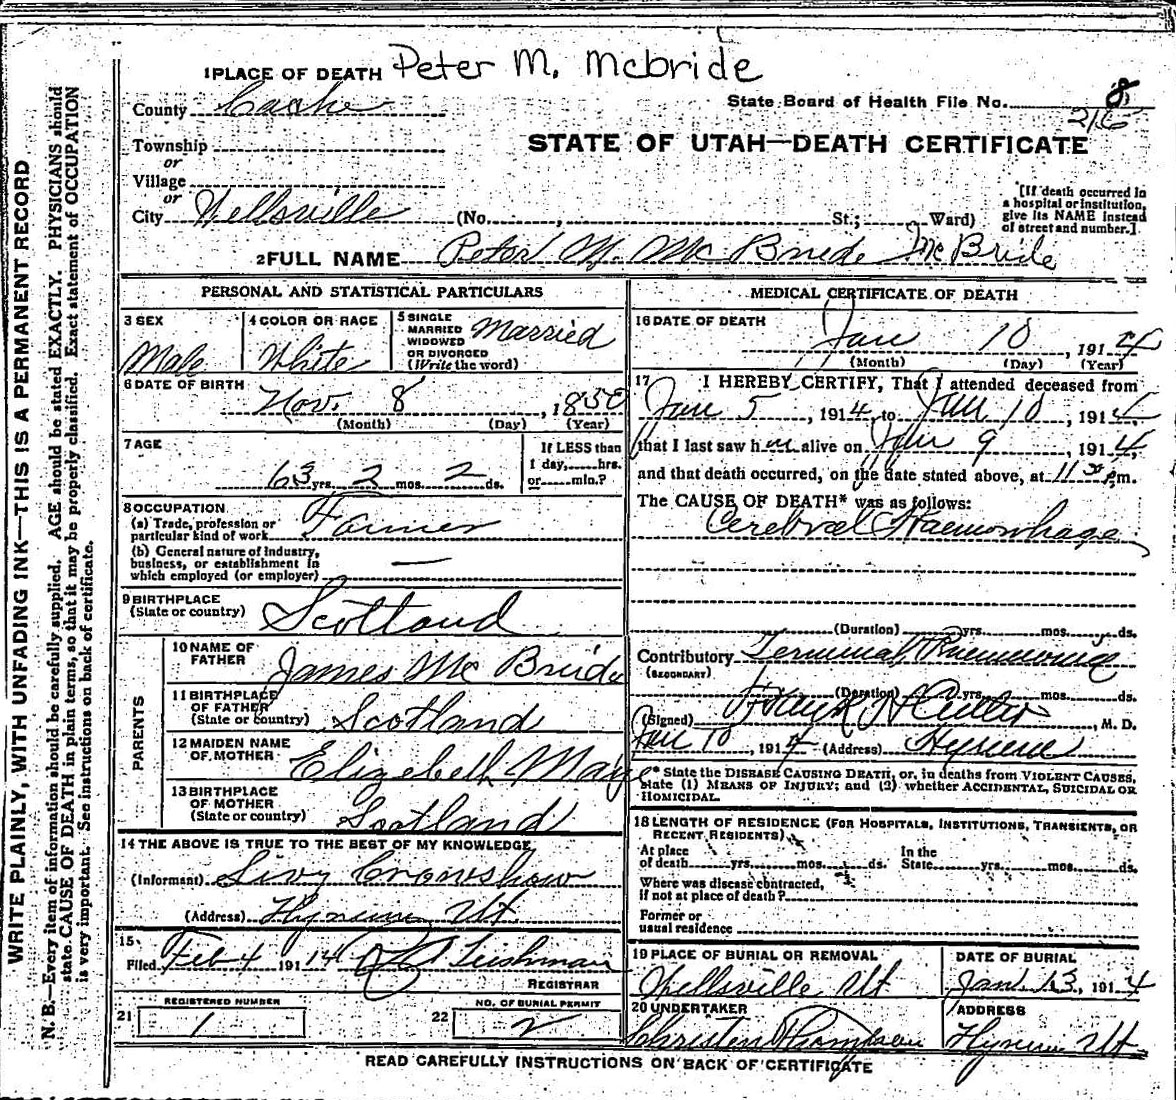 Peter M. Mcbride
1 PLACE OF DEATH
County Cache
State Board of Health File No. 8
216
STATE OF UTAH—DEATH CERTIFICATE
Township
or
Village
or
City Wellsville (No. , St.; Ward)
[If death occurred in
a hospital or institution,
give its NAME instead
of street and number.]
2 FULL NAME Peter M. Mc Bride McBride
WRITE PLAINLY, WITH UNFADING INK—THIS IS A PERMANENT RECORD
N. B.—Every item of information should be carefully supplied. AGE should be stated EXACTLY. PHYSICIANS should
state CAUSE OF DEATH in plain terms, so that it may be properly classified. Exact statement of OCCUPATION
is very important. See instructions on back of certificate.
PERSONAL AND STATISTICAL PARTICULARS
3 SEX
Male
4 COLOR OR RACE
White
5 SINGLE
MARRIED
WIDOWED
OR DIVORCED
(Write the word)
Married
6 DATE OF BIRTH
Nov. 8, 1850
(Month) (Day) (Year)
7 AGE
63 yrs. 2 mos. 2 ds.
If LESS than
1 day, hrs.
or min.?
8 OCCUPATION
(a) Trade, profession or
particular kind of work Farmer
(b) General nature of industry,
business, or establishment in
which employed (or employer) —
9 BIRTHPLACE
(State or country) Scotland
PARENTS
10 NAME OF
FATHER James Mc Bride
11 BIRTHPLACE
OF FATHER
(State or country) Scotland
12 MAIDEN NAME
OF MOTHER Elizebeth
13 BIRTHPLACE
OF MOTHER
(State or country) Scotland
14 THE ABOVE IS TRUE TO THE BEST OF MY KNOWLEDGE
(Informant) Crowshaw
(Address) Hyrum Ut
15
Filed Feb 4 1914 Leishman
REGISTRAR
REGISTERED NUMBER
21 1
NO. OF BURIAL PERMIT
22 2
MEDICAL CERTIFICATE OF DEATH
16 DATE OF DEATH
Jan 10, 1914
(Month) (Day) (Year)
17 I HEREBY CERTIFY, That I attended deceased from
Jan 5, 1914, to Jan 10, 1914
that I last saw him alive on Jan 9, 1914,
and that death occurred, on the date stated above, at 11 30 p.m.
The CAUSE OF DEATH* was as follows:
Cerebral Haemorrhage
(Duration) yrs. mos. ds.
Contributory Terminal Pneumonia
(SECONDARY)
(Duration) yrs. mos. ds.
(Signed) , M. D.
Jan 10, 1914 (Address) Hyrum
* State the DISEASE CAUSING DEATH, or, in deaths from VIOLENT CAUSES,
state (1) MEANS OF INJURY; and (2) whether ACCIDENTAL, SUICIDAL OR
HOMICIDAL.
18 LENGTH OF RESIDENCE (FOR HOSPITALS, INSTITUTIONS, TRANSIENTS, OR
RECENT RESIDENTS)
At place
of death yrs. mos. ds. In the
State yrs. mos. ds.
Where was disease contracted,
if not at place of death?
Former or
usual residence
19 PLACE OF BURIAL OR REMOVAL
Wellsville Ut
DATE OF BURIAL
Jan. 13, 1914
20 UNDERTAKER
Christen Thompson
ADDRESS
Hyrum Ut
READ CAREFULLY INSTRUCTIONS ON BACK OF CERTIFICATE